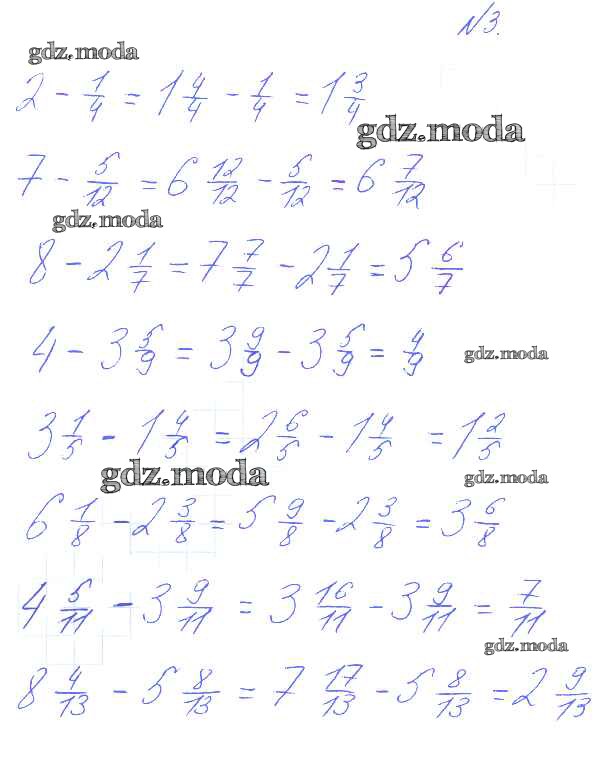 №3.
gdz.moda
2 - 1/4 = 1 4/4 - 1/4 = 1 3/4
gdz.moda
7 - 5/12 = 6 12/12 - 5/12 = 6 7/12
gdz.moda
8 - 2 1/7 = 7 7/7 - 2 1/7 = 5 6/7
4 - 3 5/9 = 3 9/9 - 3 5/9 = 4/9
gdz.moda
3 1/5 - 1 4/5 = 2 6/5 - 1 4/5 = 1 2/5
gdz.moda
gdz.moda
6 1/8 - 2 3/8 = 5 9/8 - 2 3/8 = 3 6/8
4 5/11 - 3 9/11 = 3 16/11 - 3 9/11 = 7/11
gdz.moda
8 4/13 - 5 8/13 = 7 17/13 - 5 8/13 = 2 9/13